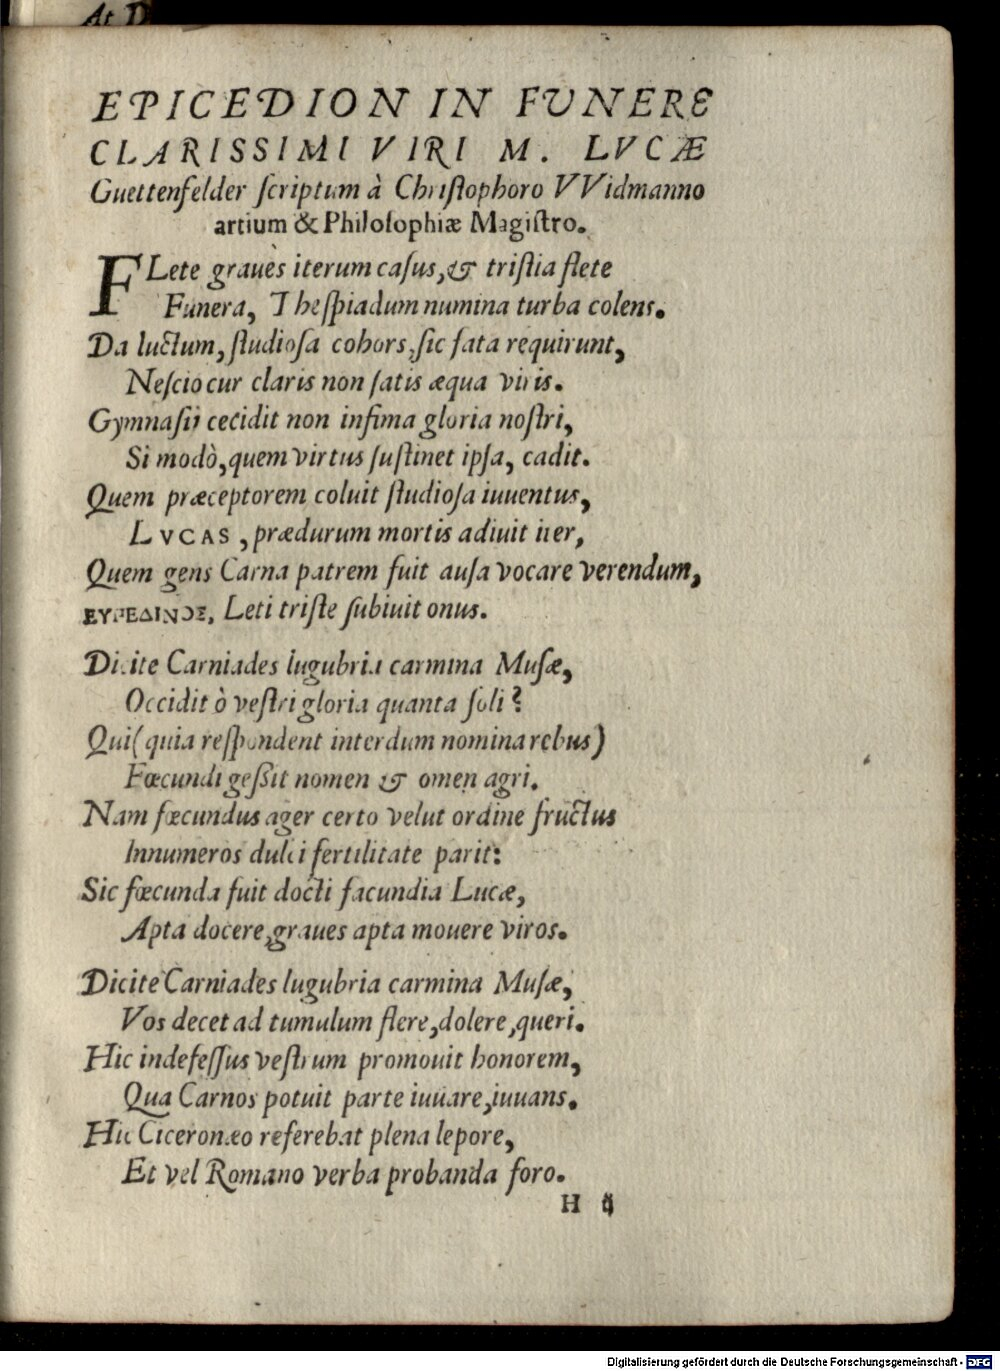 At D
EPICEDION IN FVNERE
CLARISSIMI VIRI M. LVCÆ
Guettenfelder ſcriptum à Chriſtophoro VVidmanno
artium & Philoſophiæ Magiſtro.
FLete graues iterum caſus, & triſtia flete
Funera, Theſpiadum numina turba colens.
Da luctum, ſtudioſa cohors, ſic fata requirunt,
Neſcio cur claris non ſatis æqua viris.
Gymnaſii cecidit non infima gloria noſtri,
Si modò, quem virtus ſuſtinet ipſa, cadit.
Quem præceptorem coluit ſtudioſa iuuentus,
LVCAS, prædurum mortis adiuit iter,
Quem gens Carna patrem fuit auſa vocare verendum,
Leti triſte ſubiuit onus.
Dicite Carniades lugubria carmina Muſæ,
Occidit ò veſtri gloria quanta ſoli?
Qui (quia reſpondent interdum nomina rebus)
Fœcundi geſsit nomen & omen agri.
Nam fœcundus ager certo velut ordine fructus
Innumeros dulci fertilitate parit:
Sic fœcunda fuit docti facundia Lucæ,
Apta docere, graues apta mouere viros.
Dicite Carniades lugubria carmina Muſæ,
Vos decet ad tumulum flere, dolere, queri.
Hic indefeſſus veſtrum promouit honorem,
Qua Carnos potuit parte iuuare, iuuans.
Hic Ciceronæo referebat plena lepore,
Et vel Romano verba probanda foro.
H 4
Digitalisierung gefördert durch die Deutsche Forschungsgemeinschaft - DFG